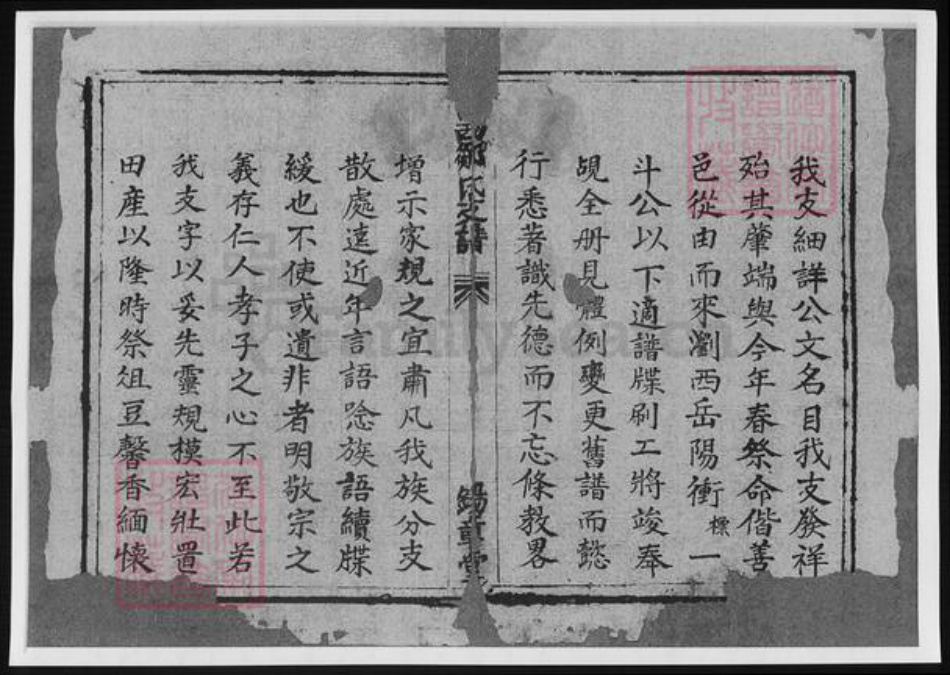 我支細詳公文名目我支發祥
殆其肇端與今年春祭命偕善
邑從由而來瀏西岳陽衝標一
斗公以下適譜牒刷工將竣奉
覘全册見體例變更舊譜而懿
行悉著識先德而不忘條教畧
鄒氏支譜
錫章堂
增示家規之宜肅凡我族分支
散處遠近年言語唸族語續牒
緩也不使或遺非者明敬宗之
義存仁人孝子之心不至此若
我支字以妥先靈規模宏壯置
田產以隆時祭俎豆馨香緬懷